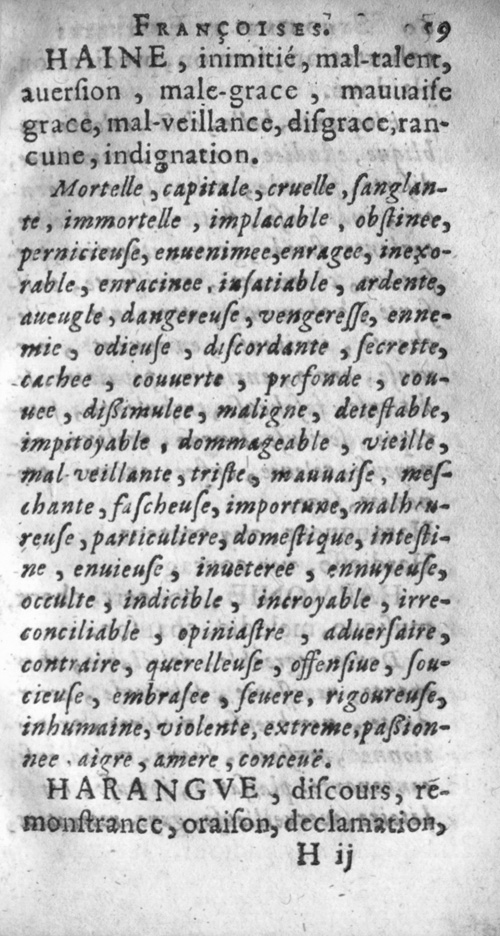 FRANÇOISES. 59
HAINE, inimitié, mal-talent,
auersion, male-grace, mauuaiſe
grace, mal-veillance, diſgrace, ran-
cune, indignation.
Mortelle, capitale, cruelle, ſanglan-
te, immortelle, implacable, obſtinee,
pernicieuſe, enuenimee, enragee, inexo-
rable, enracinee, inſatiable, ardente,
aueugle, dangereuſe, vengereſſe, enne-
mie, odieuſe, diſcordante, ſecrette,
cachee, couuerte, profonde, cou-
uee, dißimulee, maligne, deteſtable,
impitoyable, dommageable, vieille,
mal-veillante, triſte, mauuaiſe, meſ-
chante, faſcheuſe, importune, malheu-
reuſe, particuliere, domeſtique, inteſti-
ne, enuieuſe, inueteree, ennuyeuſe,
occulte, indicible, incroyable, irre-
conciliable, opiniaſtre, aduerſaire,
contraire, querelleuſe, offenſiue, ſou-
cieuſe, embraſee, ſeuere, rigoureuſe,
inhumaine, violente, extreme, paßion-
nee, aigre, amere, conceuë.
HARANGVE, diſcours, re-
monſtrance, oraiſon, declamation,
H ij